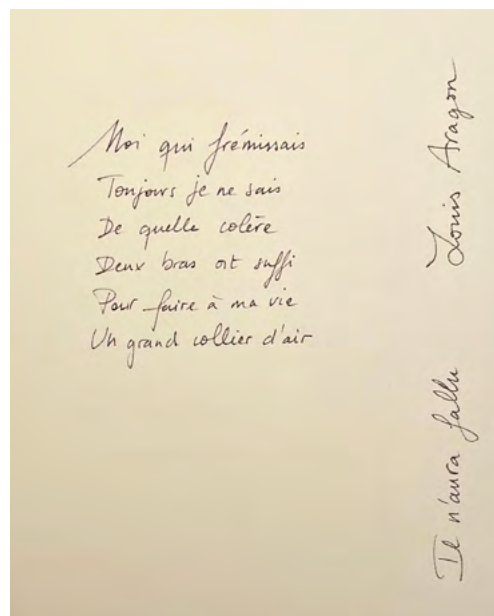 Moi qui frémissais
Toujours je ne sais
De quelle colère
Deux bras ont suffi
Pour faire à ma vie
Un grand collier d'air
Il n'aura fallu
Louis Aragon